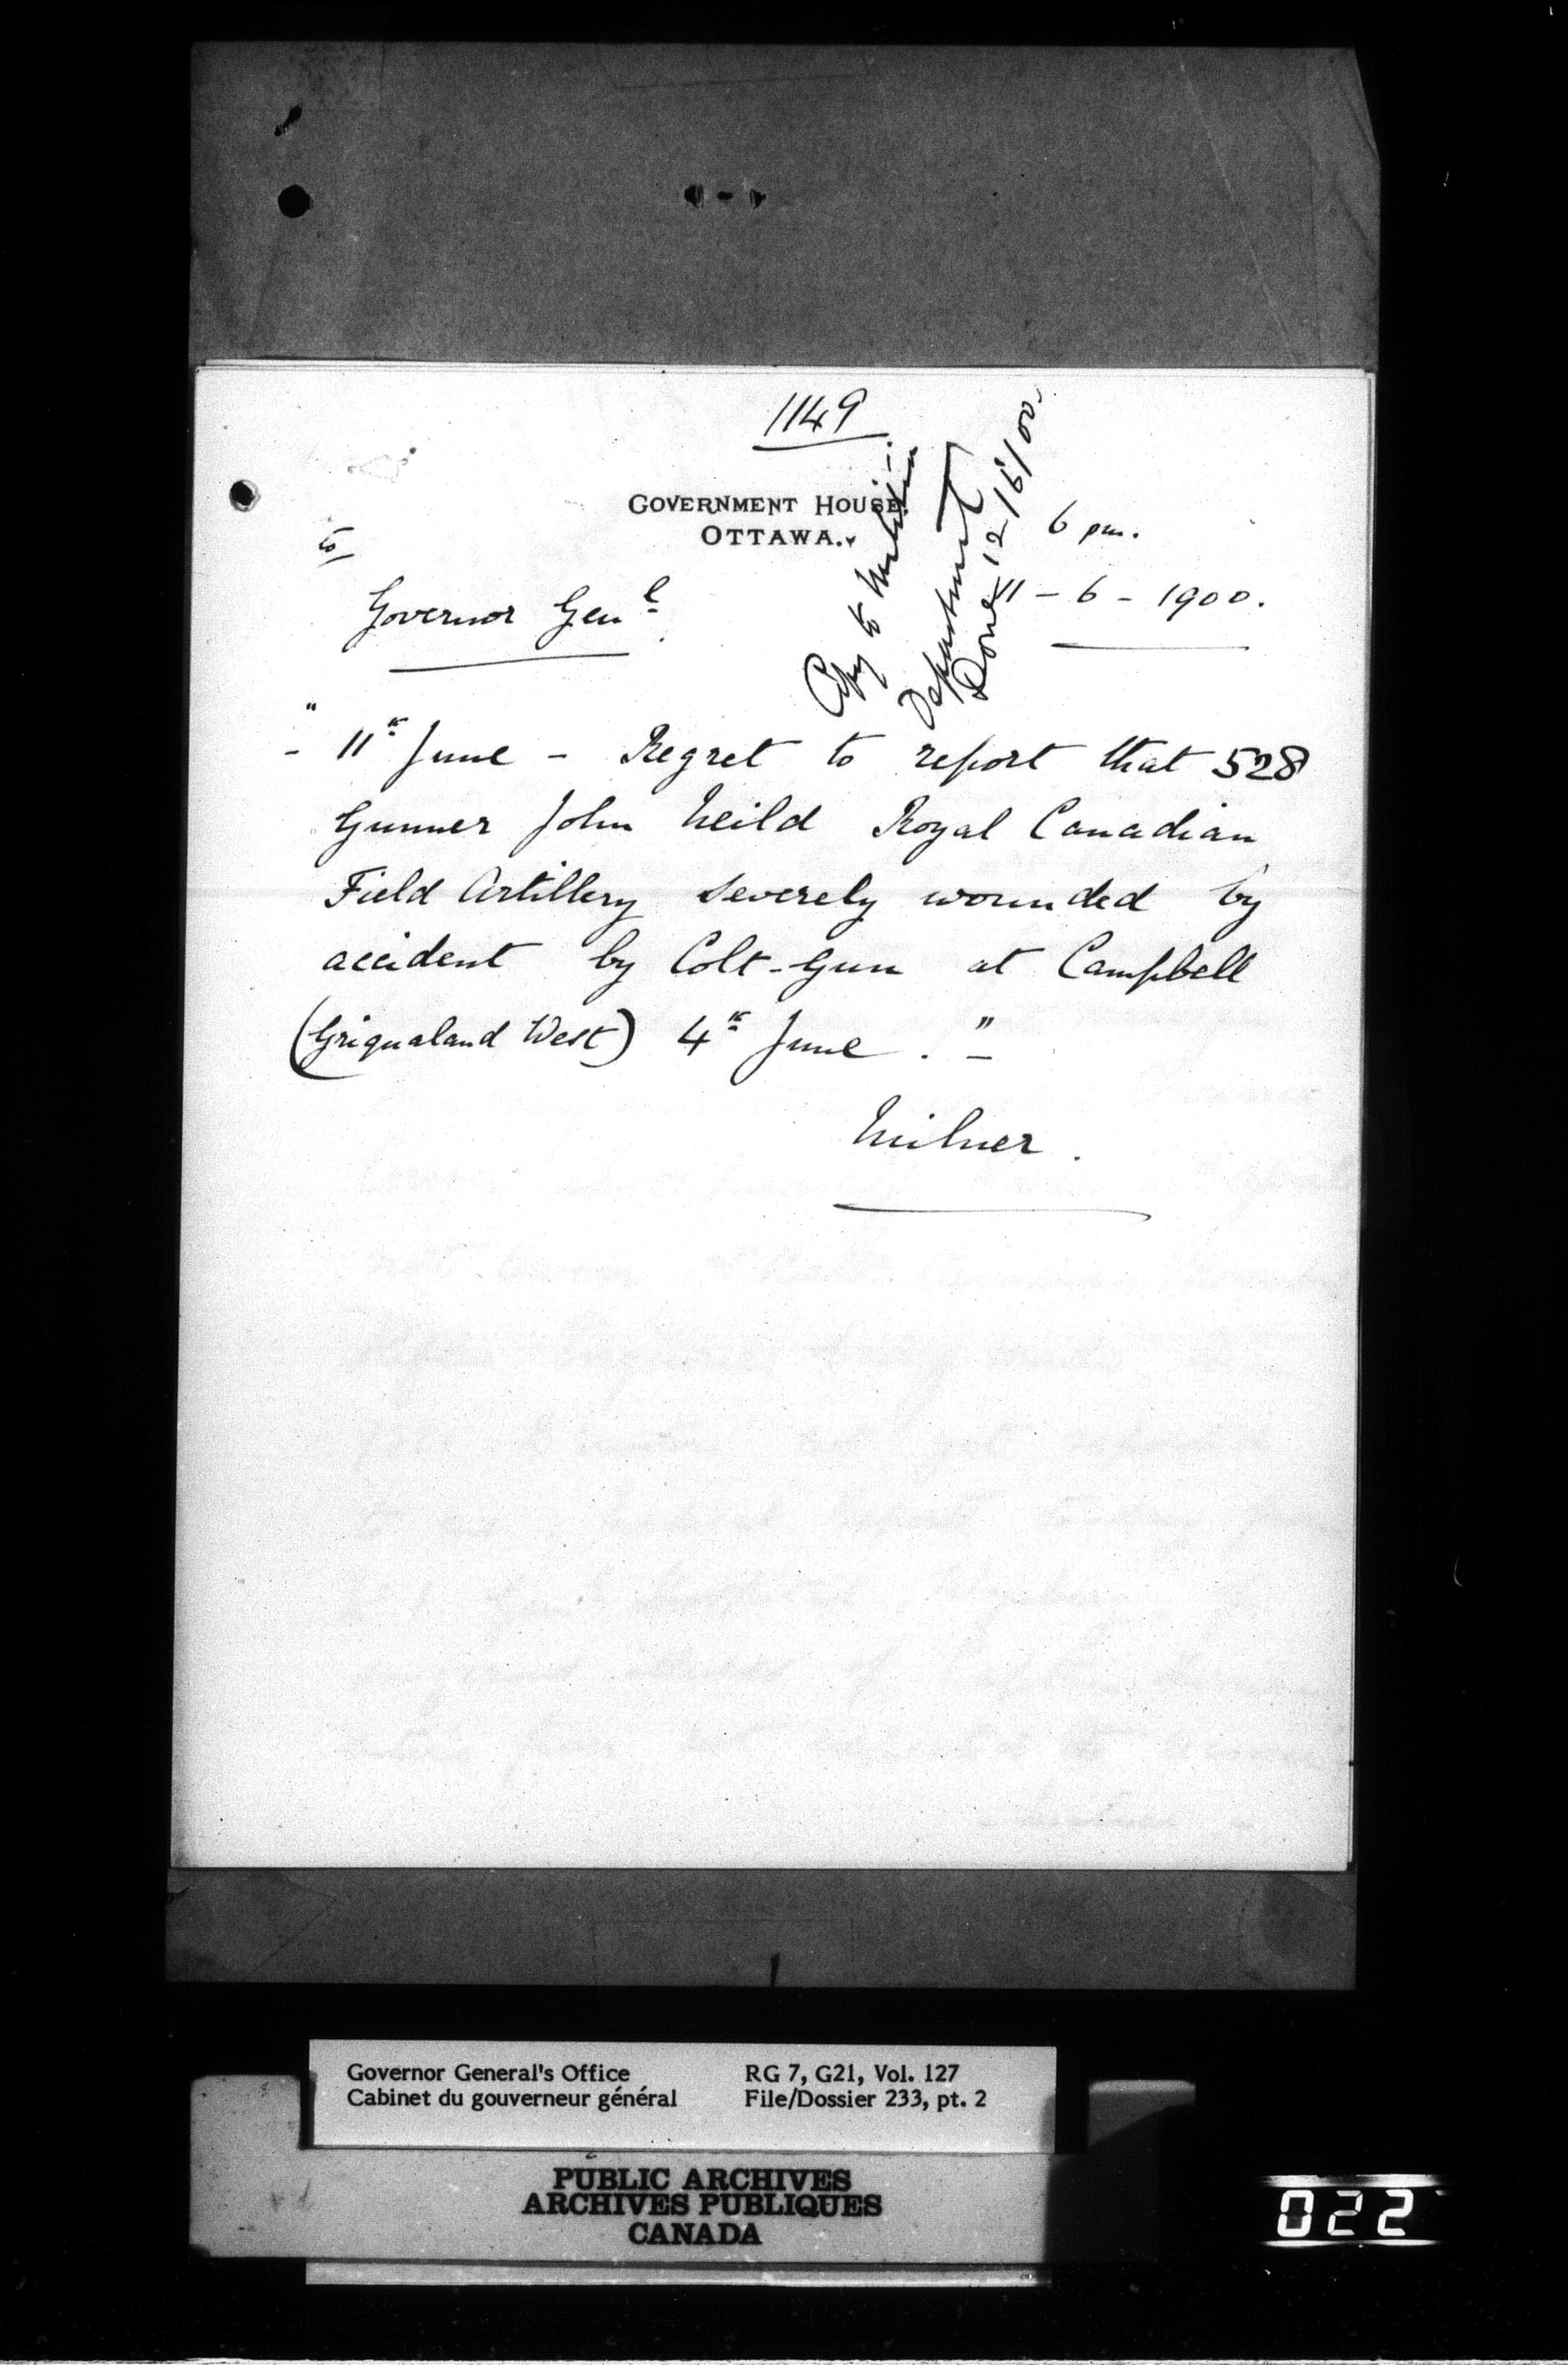 1149
GOVERNMENT HOUSE.
OTTAWA.
Copy to Militia
Department
Done 12/6/00.
6 pm.
11-6-1900.
to
Governor Genl.
" - 11th June - Regret to report that 528
Gunner John Neild Royal Canadian
Field Artillery severely wounded by
accident by Colt-Gun at Campbell
(Griqualand West) 4th June . " -
Milner.
Governor General's Office
Cabinet du gouverneur général
RG 7, G21, Vol. 127
File/Dossier 233, pt. 2
PUBLIC ARCHIVES
ARCHIVES PUBLIQUES
CANADA
022